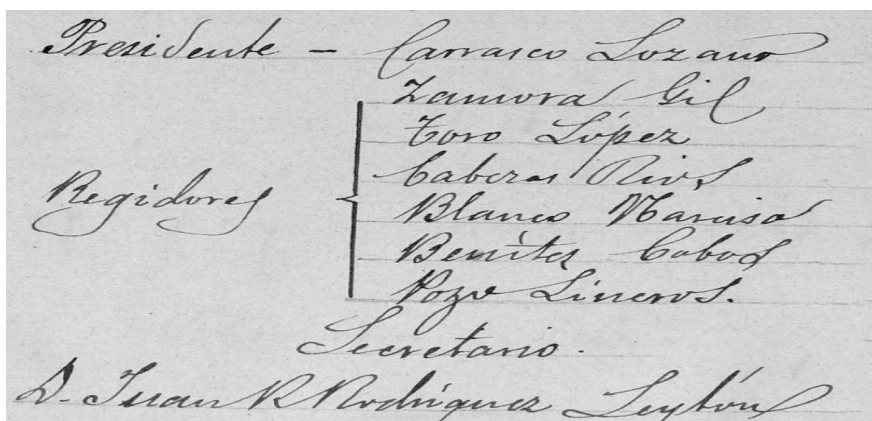 Presidente - Carrasco Lozano
Zamora Gil
Toro López
Cabezas Rios
Regidores
Blanco Narcisa
Benítez Cobos
Pozo Lineros.
Secretario.
D. Juan R Rodríguez Leytón